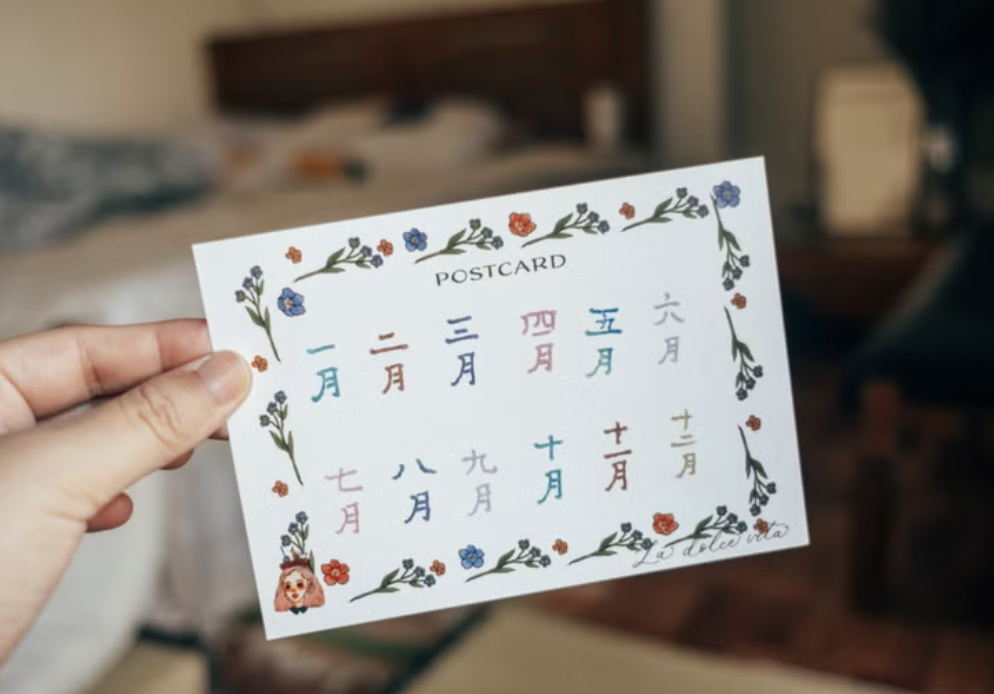 POSTCARD
一月 二月 三月 四月 五月 六月
七月 八月 九月 十月 十一月 十二月
La dolce vita